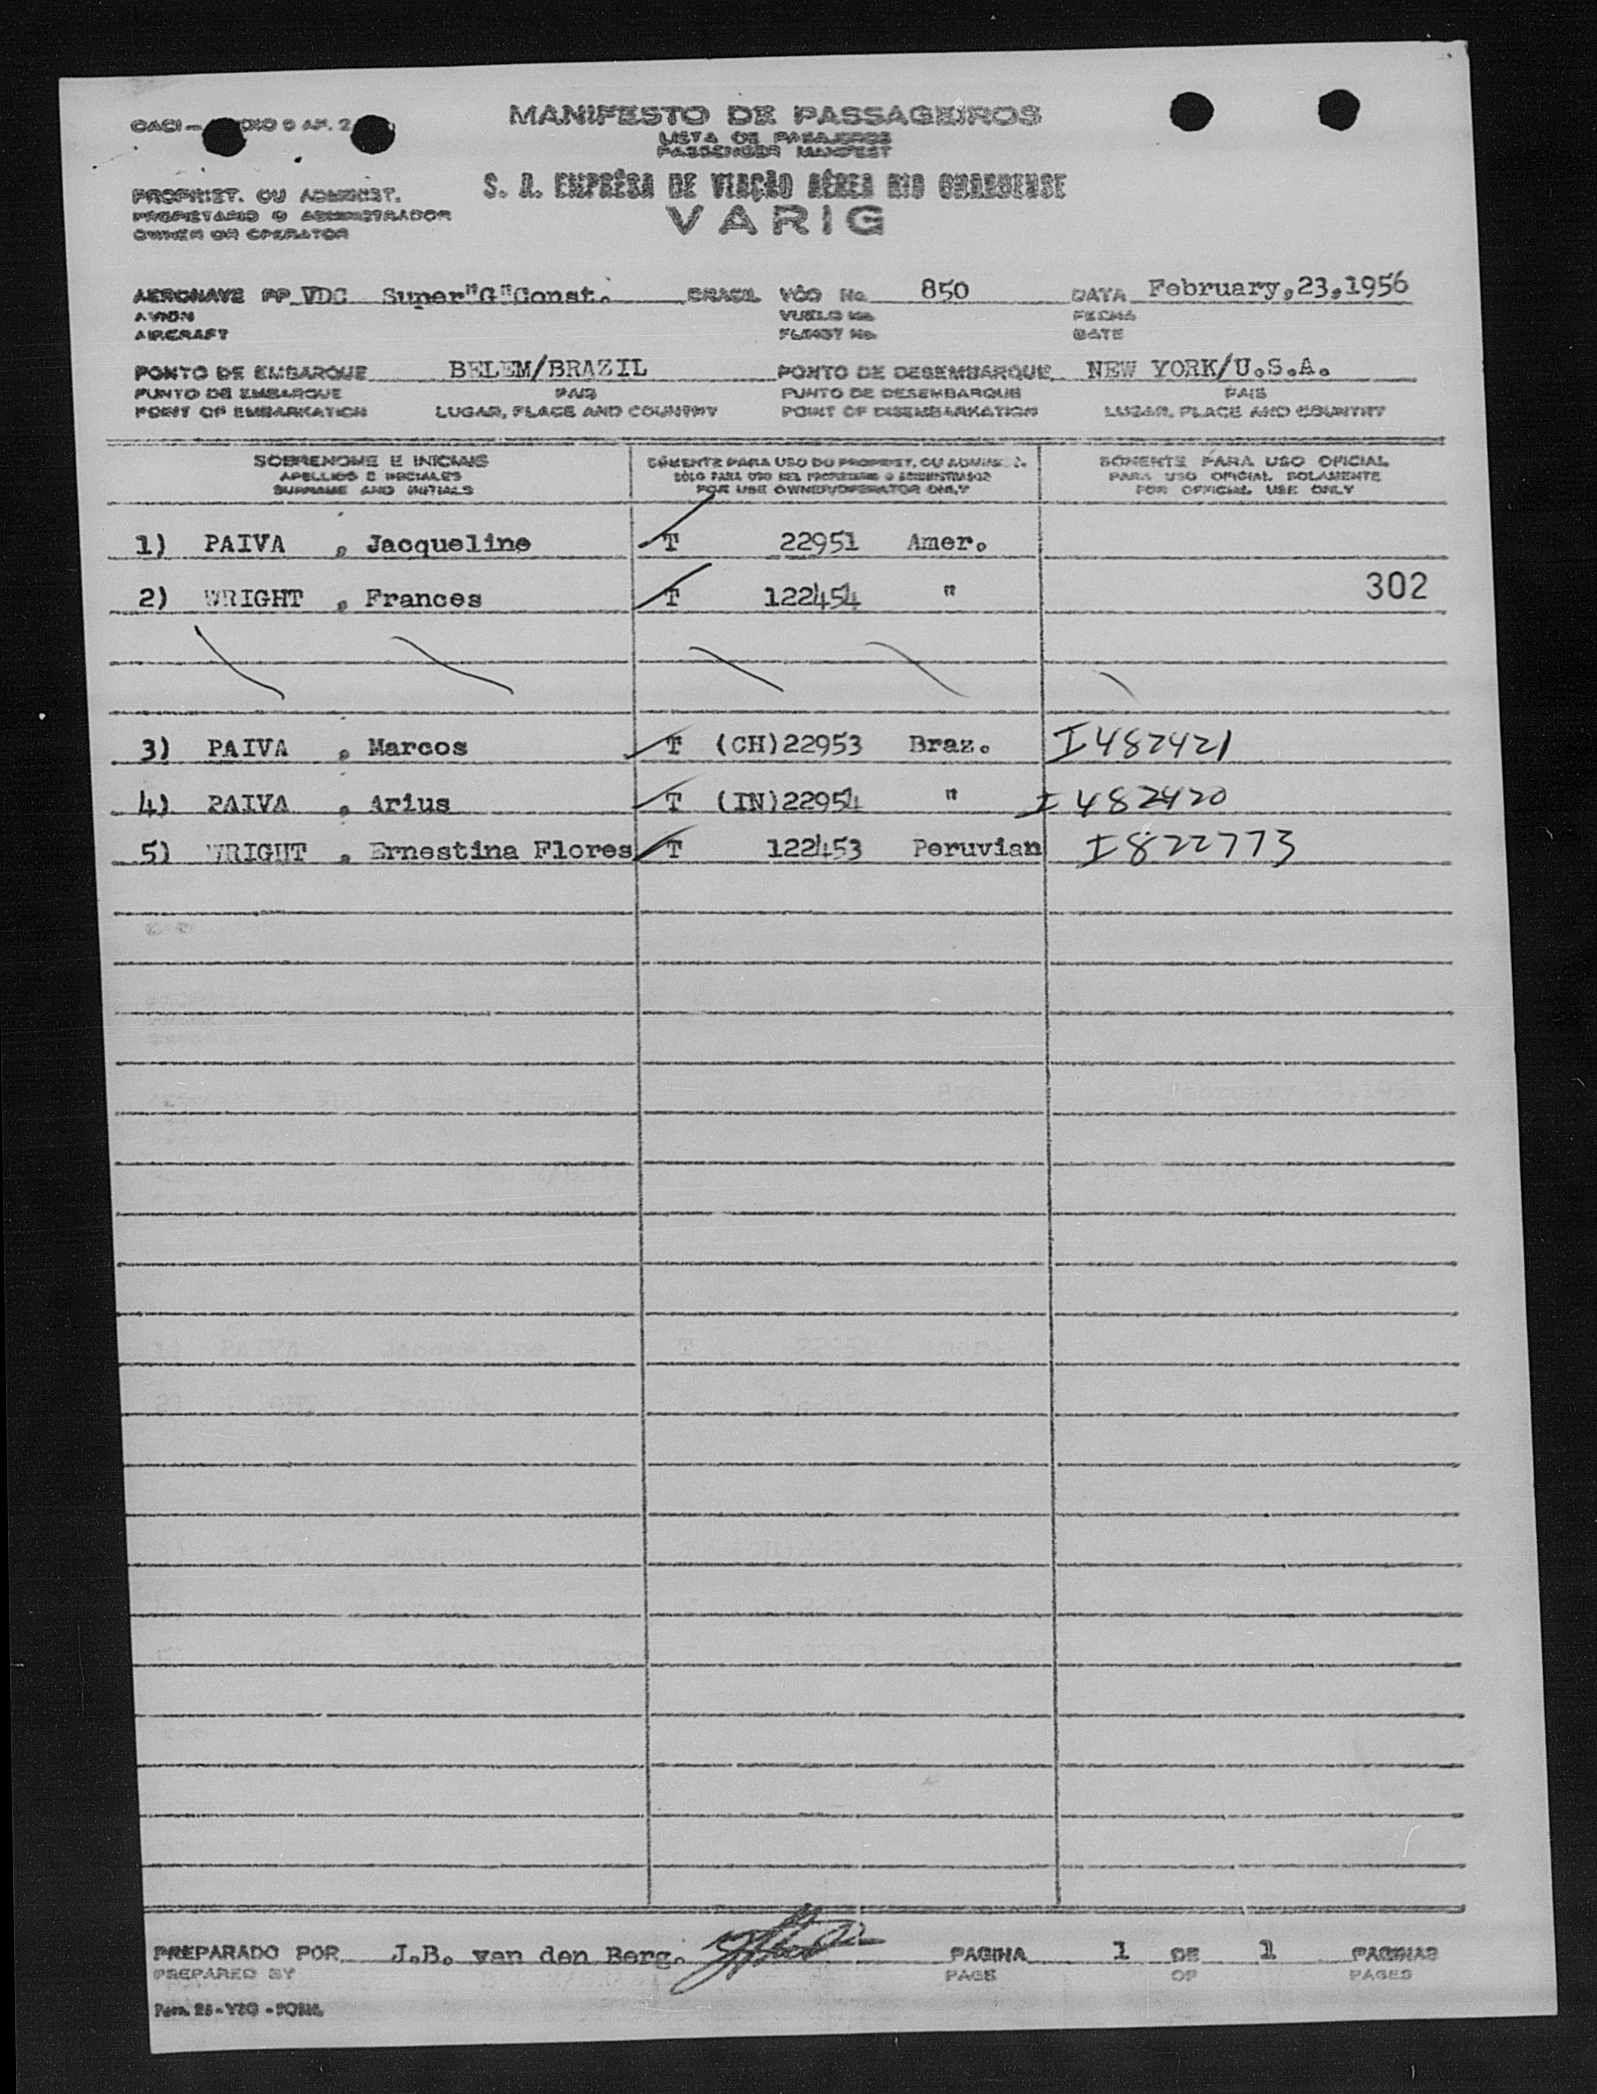 MANIFESTO DE PASSAGEIROS
LISTA DE PASAJEROS
PASSENGER MANIFEST
OACI —
PROPRIET. OU ADMINIST.
PROPIETARIO O ADMINISTRADOR
OWNER OR OPERATOR
S. A. EMPRÊSA DE VIAÇÃO AÉREA RIO GRANDENSE
VARIG
AERONAVE PP VDC Super"G"Const. BRASIL VÔO No. 850 DATA February,23,1956
AVION VUELO No. FECHA
AIRCRAFT FLIGHT No. DATE
PONTO DE EMBARQUE BELEM/BRAZIL PONTO DE DESEMBARQUE NEW YORK/U.S.A.
PUNTO DE EMBARQUE PAIS PUNTO DE DESEMBARQUE PAIS
POINT OF EMBARKATION LUGAR, PLACE AND COUNTRY POINT OF DISEMBARKATION LUGAR, PLACE AND COUNTRY
SOBRENOME E INICIAIS SÓMENTE PARA USO DO PROPRIET. OU ADMINIST. SÓMENTE PARA USO OFICIAL
APELLIDO E INICIALES SÓLO PARA USO DEL PROPIETARIO O ADMINISTRADOR PARA USO OFICIAL SOLAMENTE
SURNAME AND INITIALS FOR USE OWNER/OPERATOR ONLY FOR OFFICIAL USE ONLY
1) PAIVA , Jacqueline T 22951 Amer.
2) WRIGHT , Frances T 122454 " 302
3) PAIVA , Marcos T (CH)22953 Braz. I482421
4) PAIVA , Arius T (IN)22954 " I 482420
5) WRIGHT , Ernestina Flores T 122453 Peruvian I822773
PREPARADO POR J.B. van den Berg. PAGINA 1 DE 1 PAGINAS
PREPARED BY PAGE OF PAGES